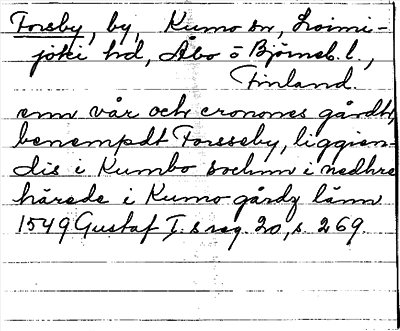 Forsby, by, Kumo sn, Loimi-
joki hd, Åbo o Björneb. l.,
Finland.
enn vår och cronones gårdh,
benempdt Forsseby, liggien-
dis i Kumbo sochnn i nedhre
härede i Kumo gårdz länn
1549 Gustaf I. s reg. 20, s. 269.